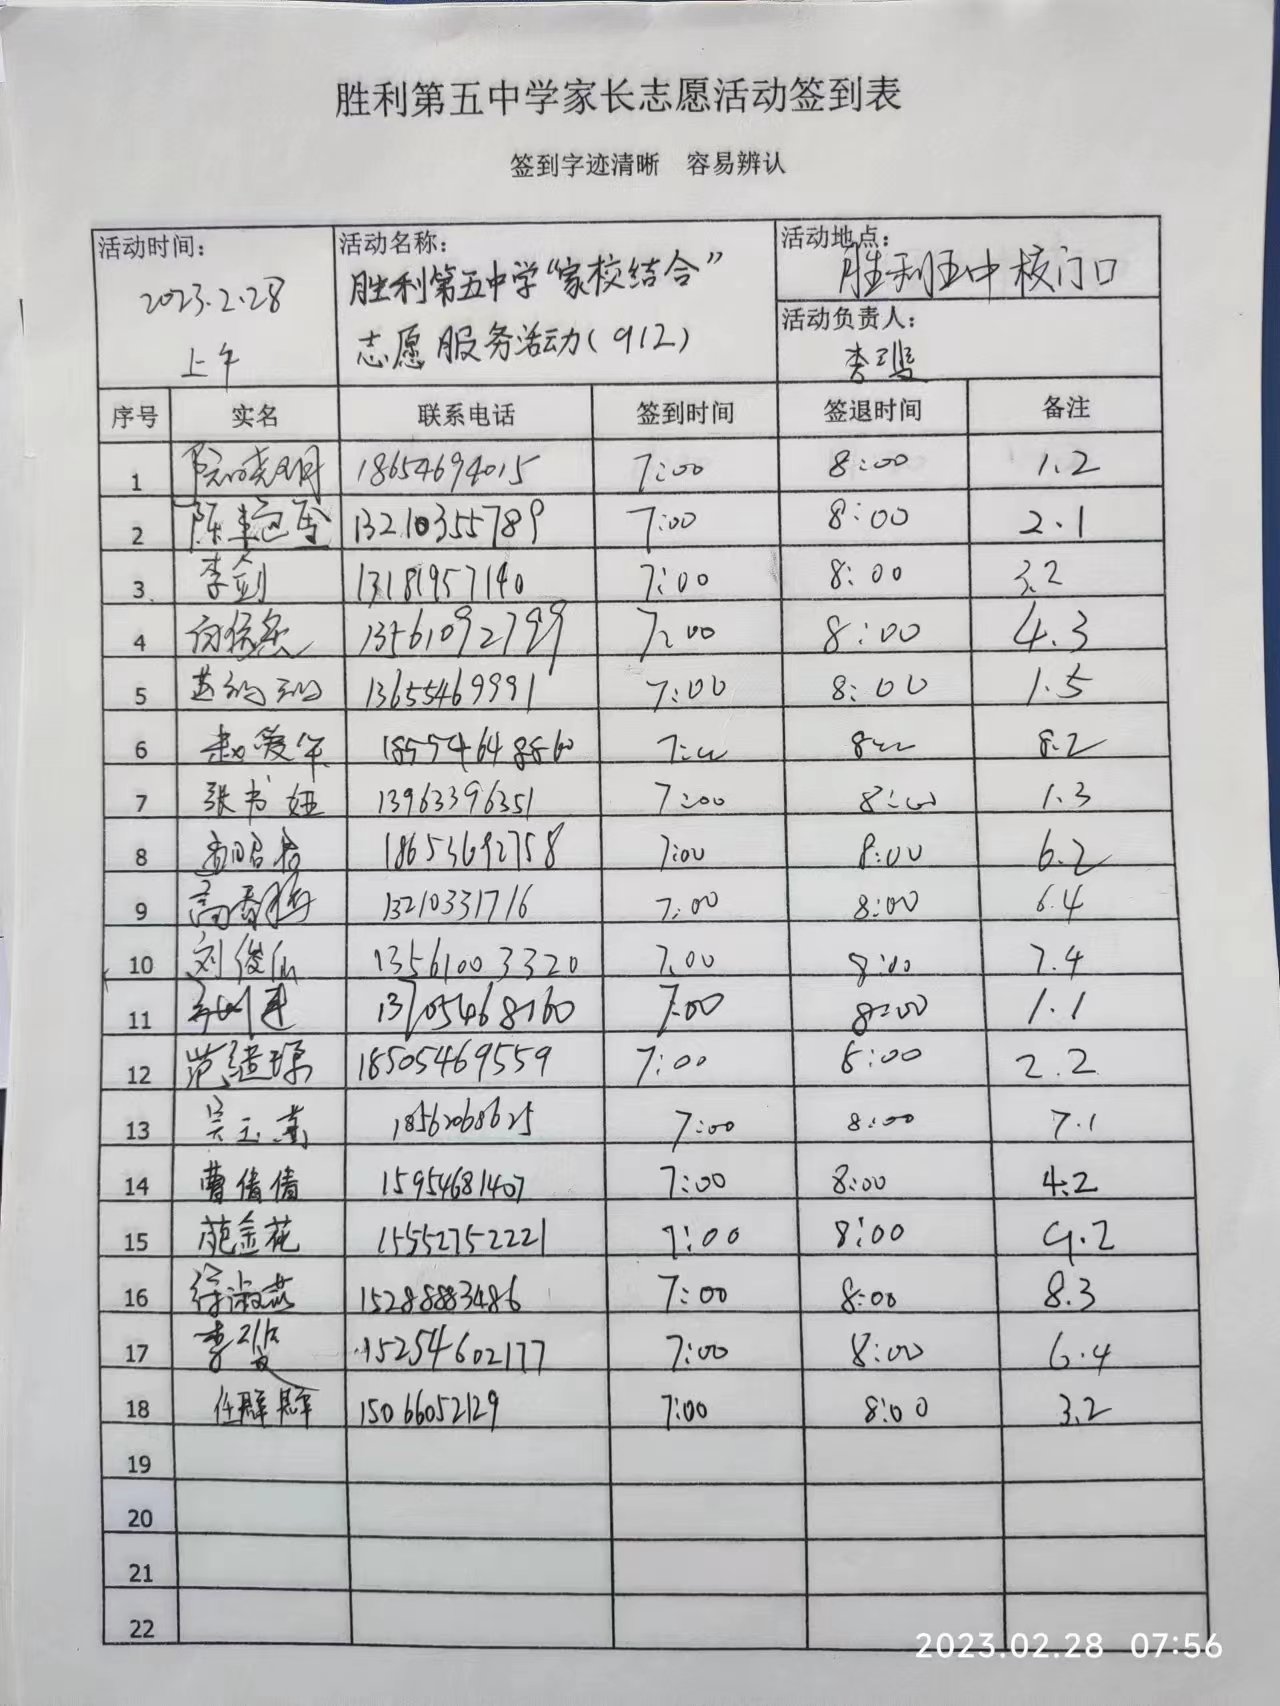 胜利第五中学家长志愿活动签到表
签到字迹清晰 容易辨认
活动时间：
2023.2.28
上午
活动名称：
胜利第五中学“家校结合”
志愿服务活动（912）
活动地点：
胜利五中校门口
活动负责人：
李
序号 实名 联系电话 签到时间 签退时间 备注
1 18654694015 7:00 8:00 1.2
2 陈 13210355789 7:00 8:00 2.1
3 李剑 13181957140 7:00 8:00 3.2
4 13561092799 7:00 8:00 4.3
5 13655469991 7:00 8:00 1.5
6 赵爱华 18554648860 7:00 8:00 8.2
7 张书妞 13963396351 7:00 8:00 1.3
8 18653692758 7:00 8:00 6.2
9 高 13210331716 7:00 8:00 6.4
10 刘俊仙 13561003320 7:00 8:00 7.4
11 13705468160 7:00 8:00 1.1
12 范继瑔 18505469559 7:00 8:00 2.2
13 吴玉燕 18562068625 7:00 8:00 7.1
14 曹倩倩 15954681407 7:00 8:00 4.2
15 苑金花 15552752221 7:00 8:00 9.2
16 徐淑燕 15288883486 7:00 8:00 8.3
17 李 15254602177 7:00 8:00 6.4
18 任群群 15066052129 7:00 8:00 3.2
19
20
21
22
2023.02.28 07:56